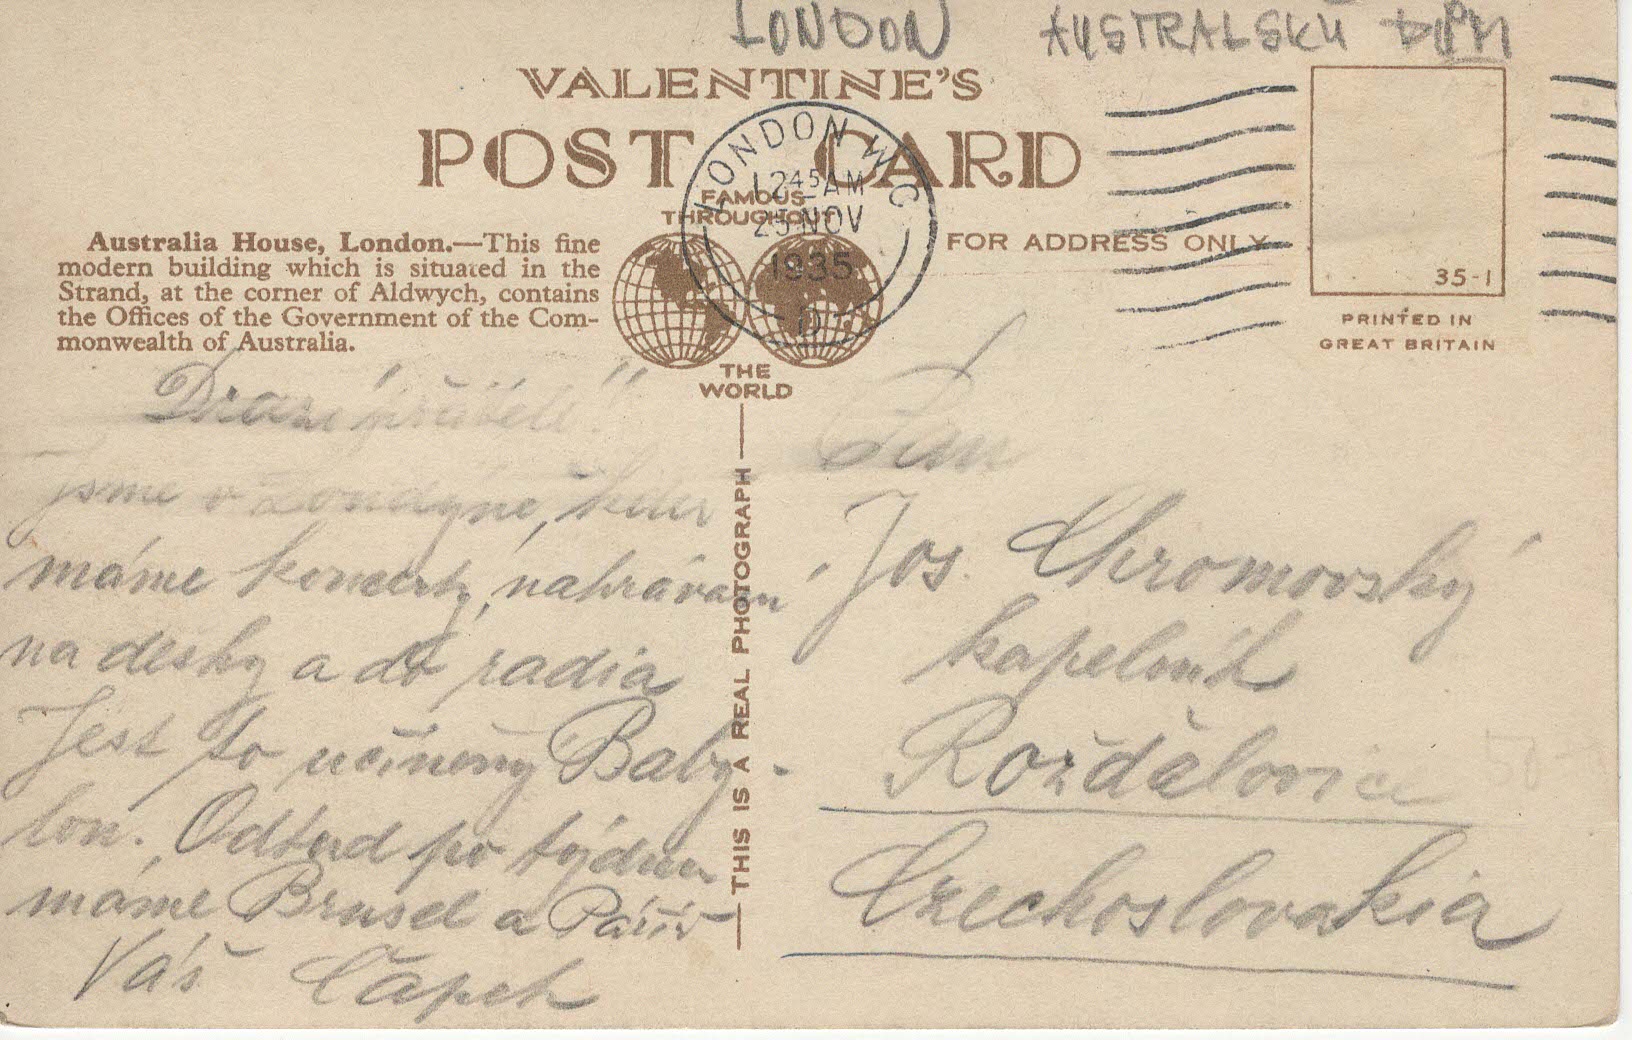 LONDON AUSTRALSKÝ DŮM
VALENTINE'S
POST CARD
LONDON W.C.
12 45 AM
25 NOV
1935
D
FAMOUS
THROUGHOUT
THE
WORLD
FOR ADDRESS ONLY
35-1
PRINTED IN
GREAT BRITAIN
Australia House, London.—This fine
modern building which is situated in the
Strand, at the corner of Aldwych, contains
the Offices of the Government of the Com-
monwealth of Australia.
THIS IS A REAL PHOTOGRAPH
Drazí přátelé!
Jsme v Londýně,
máme koncerty, nahráván
na desky a do radia
Jest to učiněný Baby-
lon. Odtud po týdnu
máme Brusel a Paříž
Váš Čapek
Pan
Jos. Chromovský
kapelník
Rožďalovice
Czechoslovakia